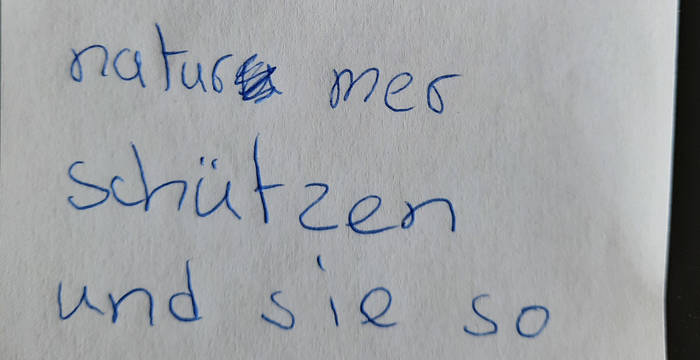 natur mer
schützen
und sie so